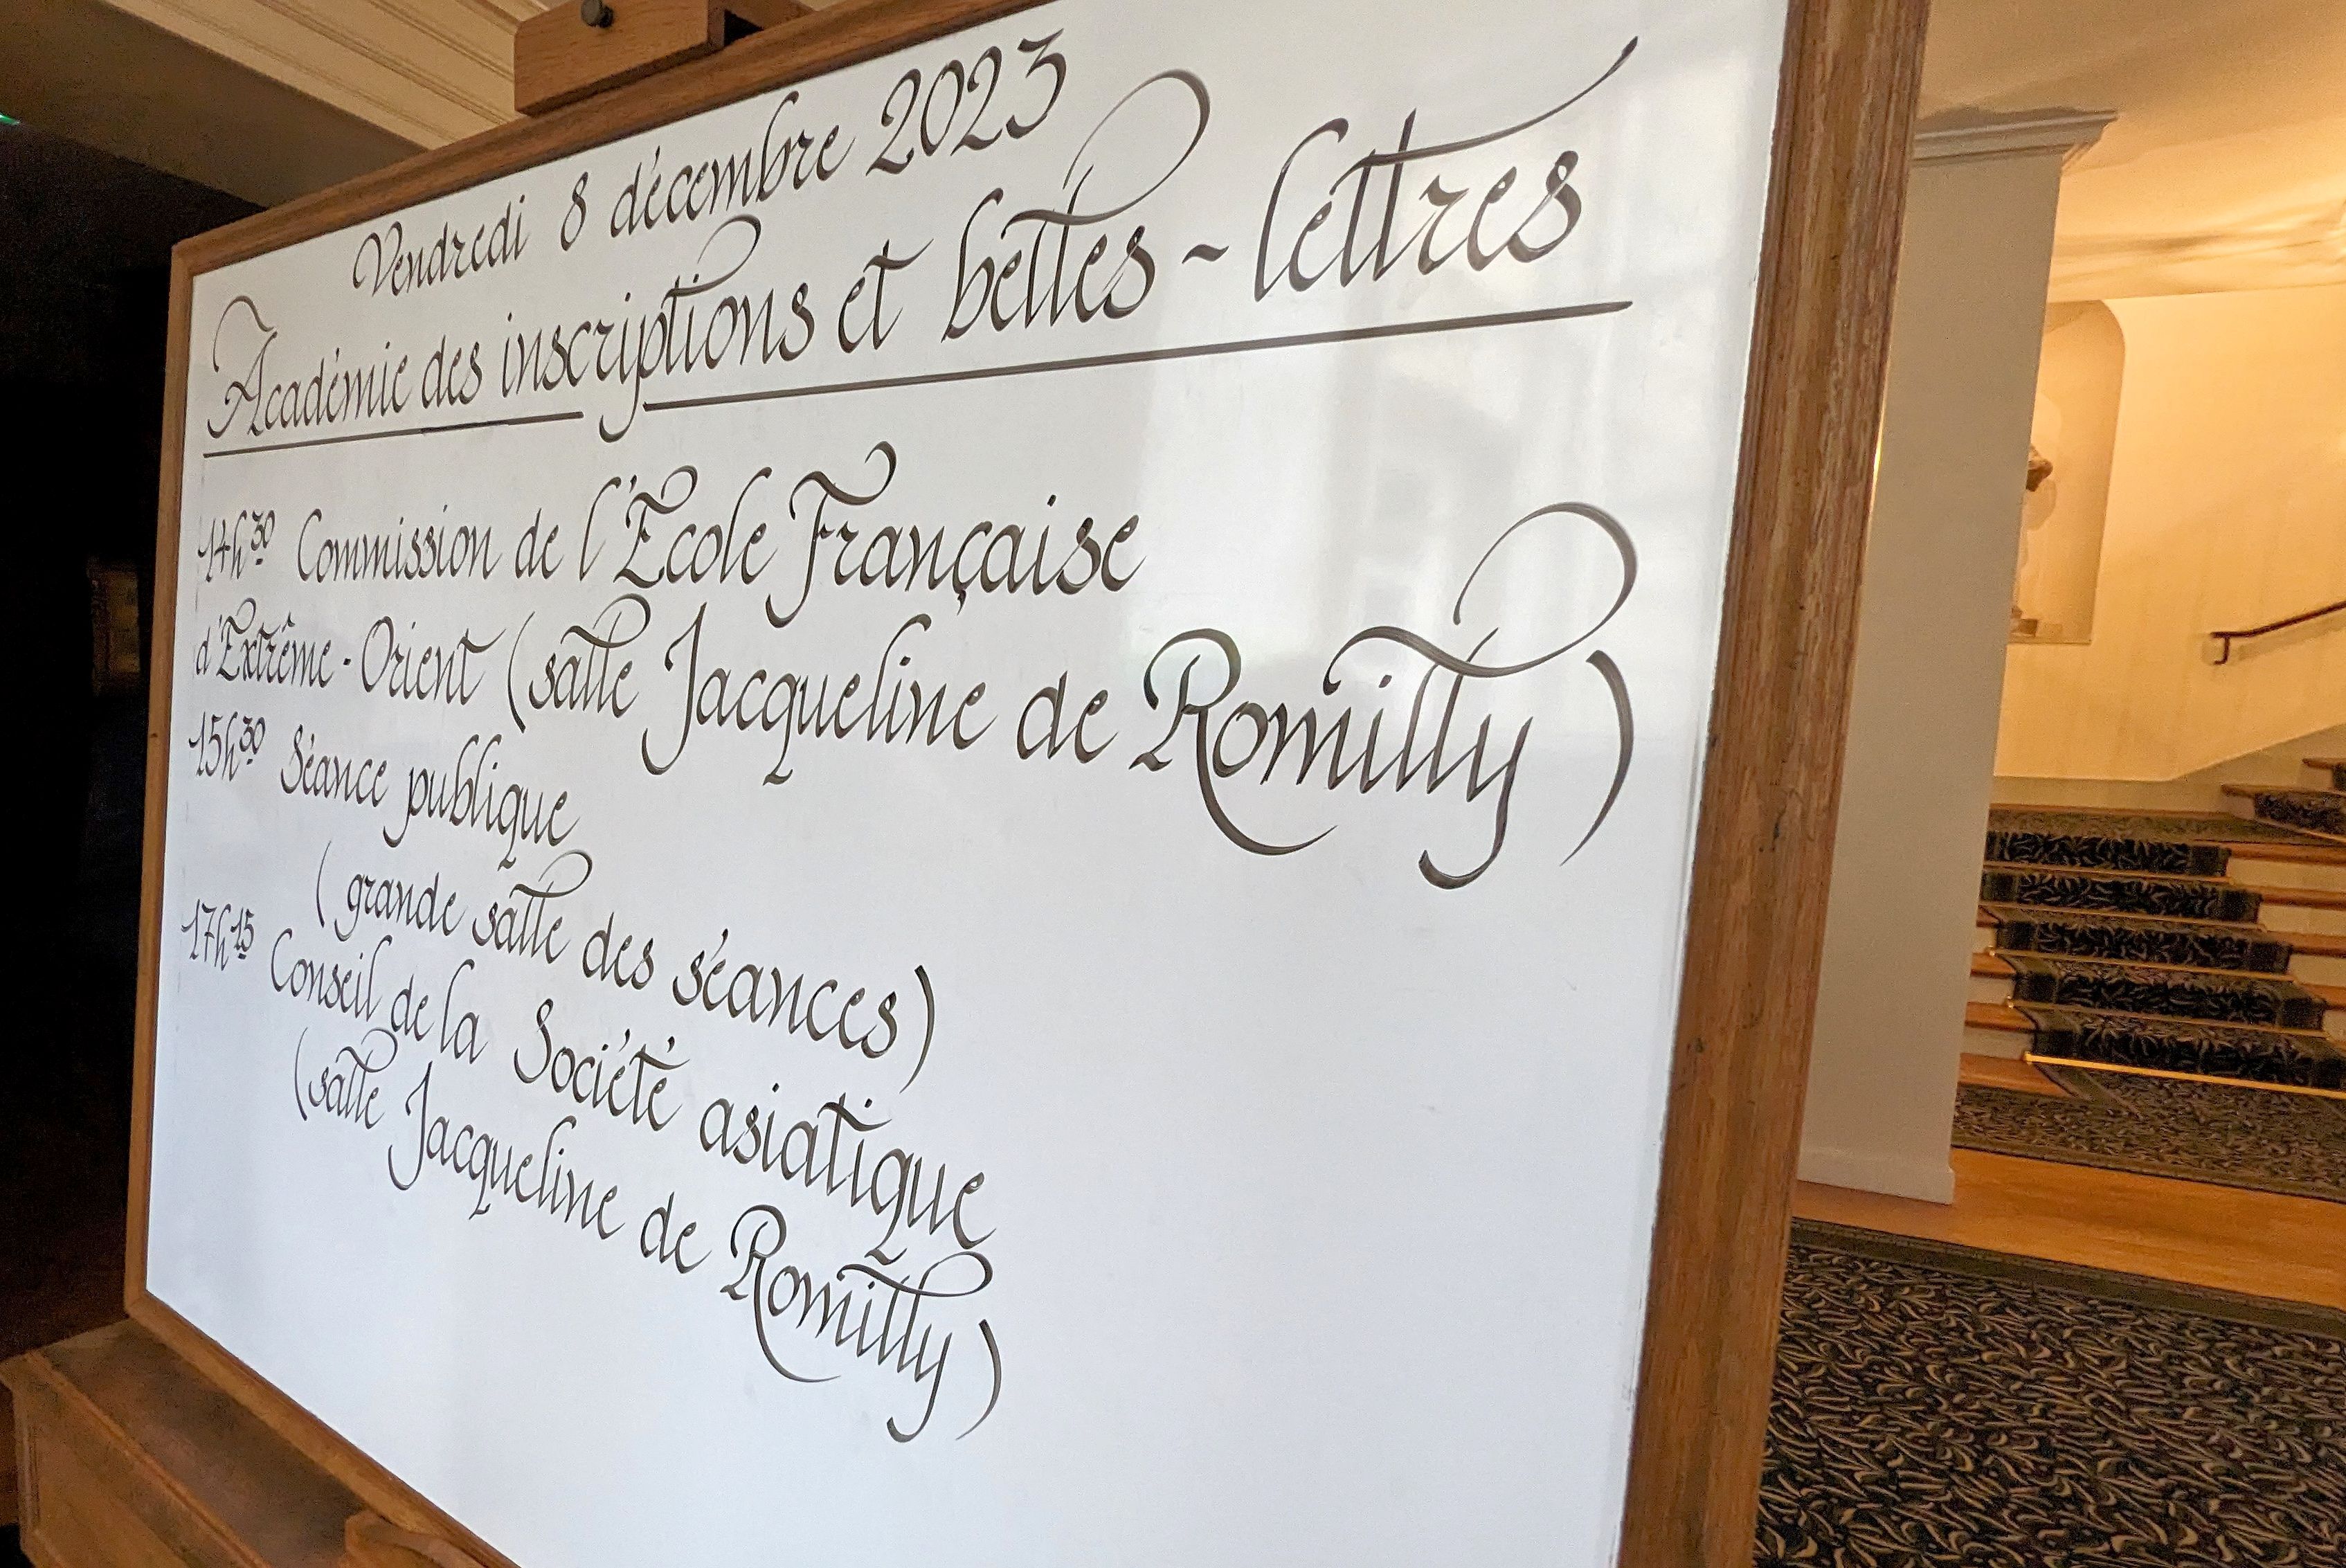 Vendredi 8 décembre 2023
Académie des inscriptions et belles-lettres
14h30 Commission de l'École Française
d'Extrême-Orient (salle Jacqueline de Romilly)
15h30 Séance publique
(grande salle des séances)
17h15 Conseil de la Société asiatique
(salle Jacqueline de Romilly)